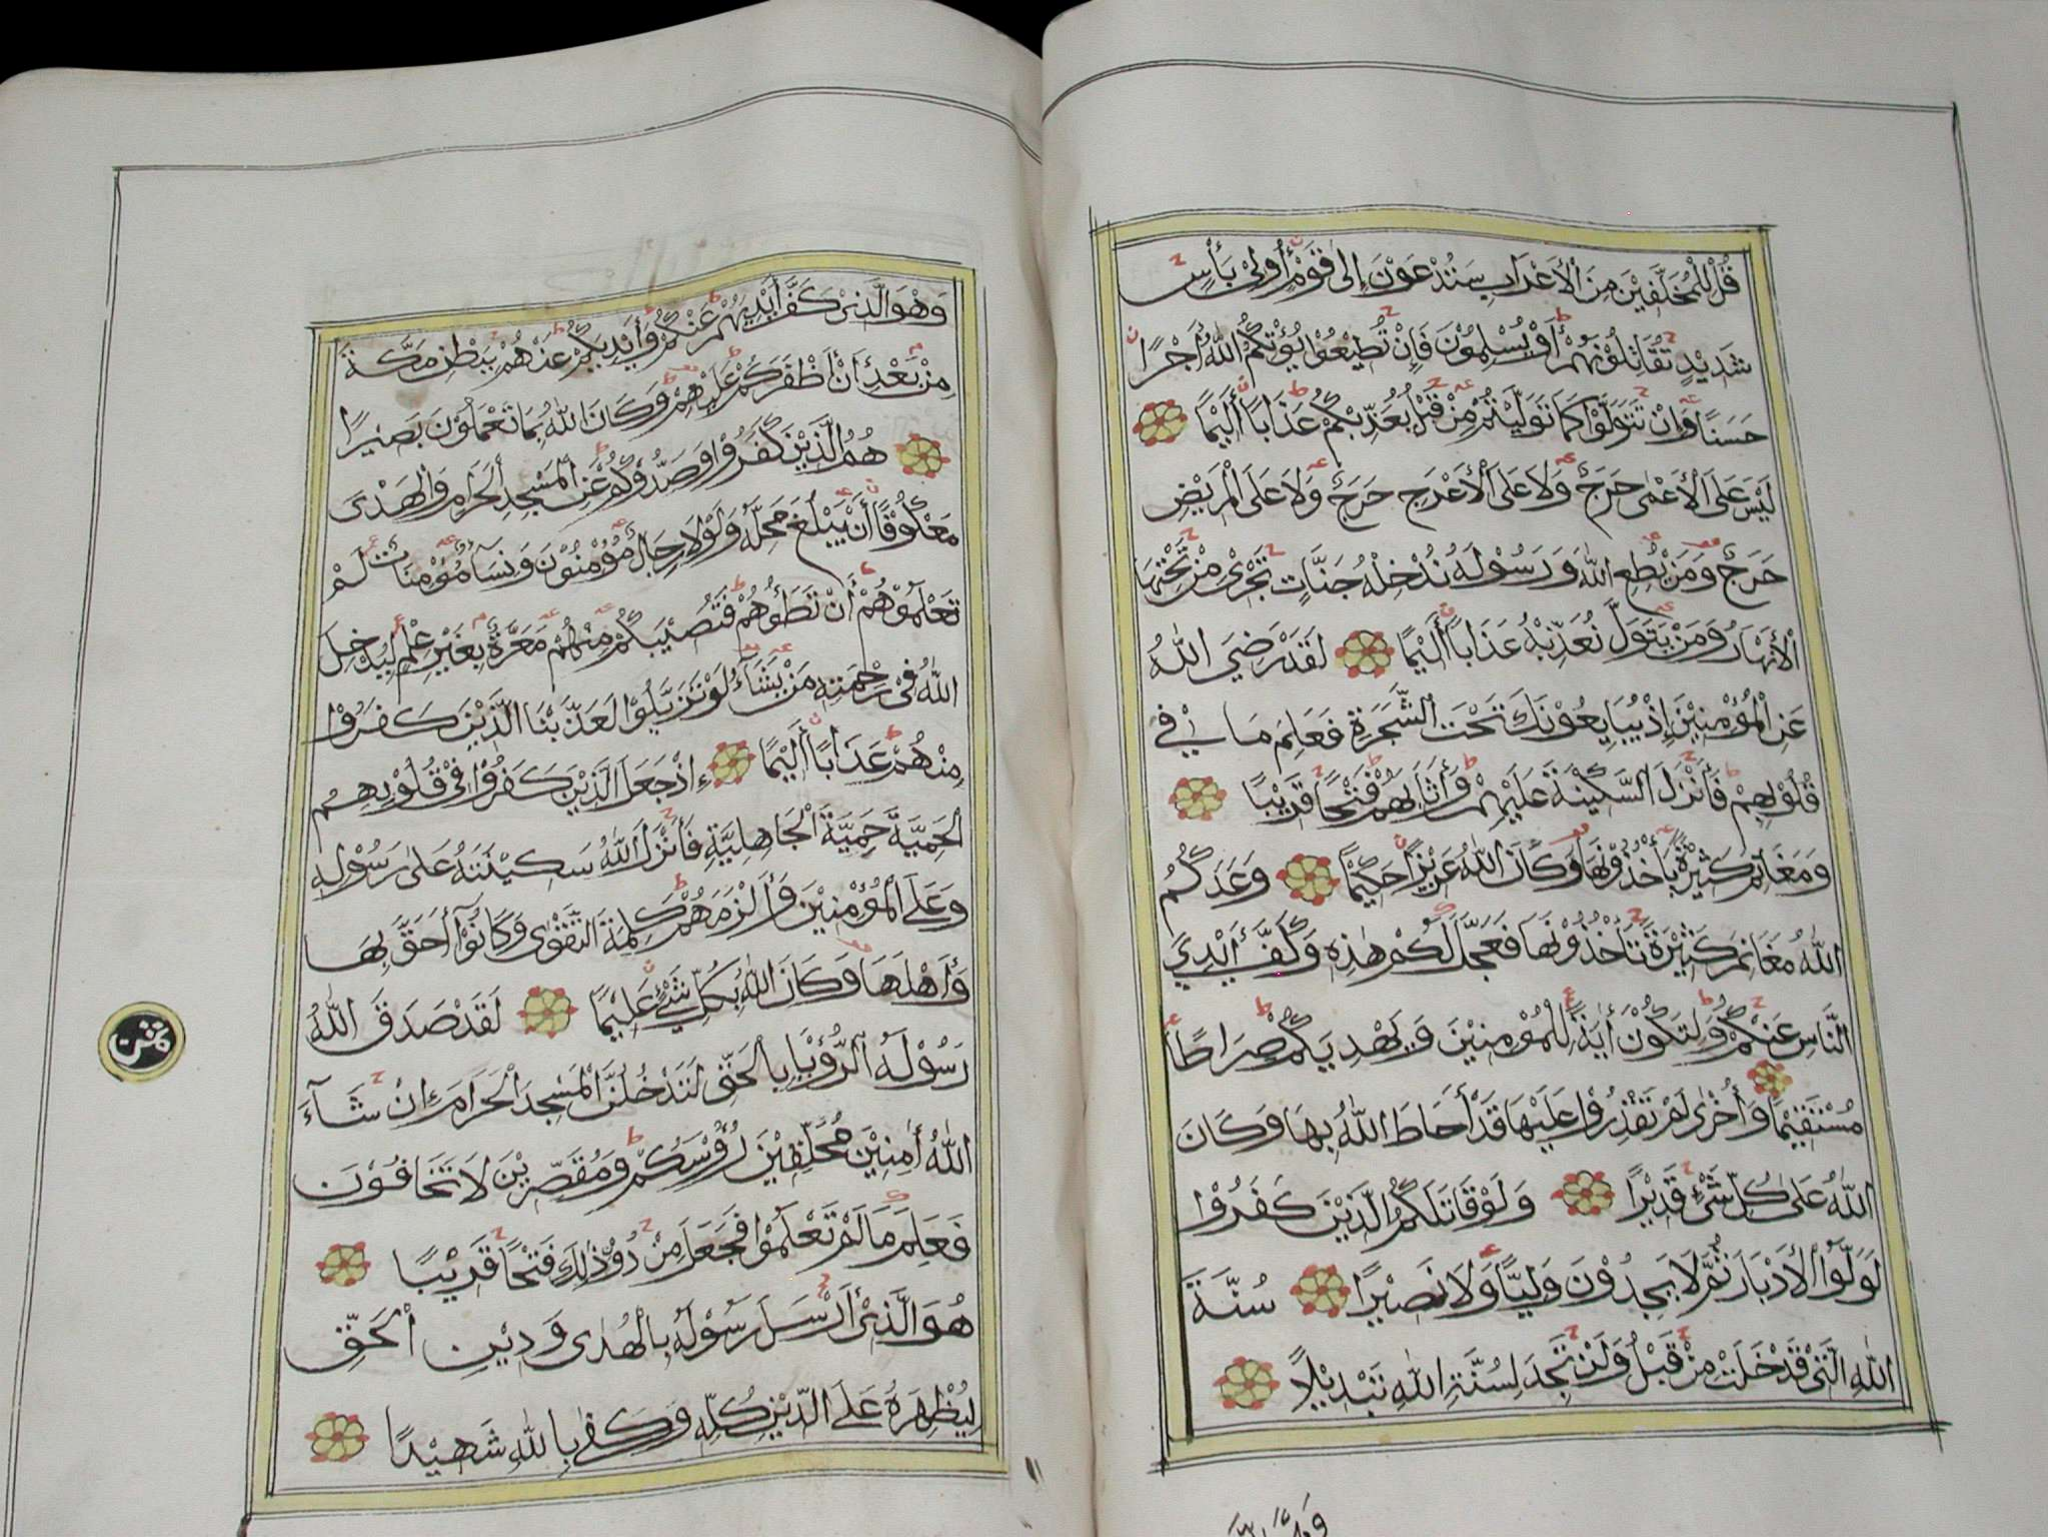 قُلْ لِلْمُخَلَّفِيْنَ مِنَ الْأَعْرَابِ سَتُدْعَوْنَ إِلٰى قَوْمٍ أُولِيْ بَأْسٍ
شَدِيْدٍ تُقَاتِلُوْنَهُمْ أَوْ يُسْلِمُوْنَ فَإِنْ تُطِيْعُوْا يُؤْتِكُمُ اللّٰهُ أَجْرًا
حَسَنًا وَإِنْ تَتَوَلَّوْا كَمَا تَوَلَّيْتُمْ مِنْ قَبْلُ يُعَذِّبْكُمْ عَذَابًا أَلِيْمًا
لَيْسَ عَلَى الْأَعْمٰى حَرَجٌ وَلَا عَلَى الْأَعْرَجِ حَرَجٌ وَلَا عَلَى الْمَرِيْضِ
حَرَجٌ وَمَنْ يُطِعِ اللّٰهَ وَرَسُوْلَهُ نُدْخِلْهُ جَنَّاتٍ تَجْرِيْ مِنْ تَحْتِهَا
الْأَنْهَارُ وَمَنْ يَتَوَلَّ نُعَذِّبْهُ عَذَابًا أَلِيْمًا لَقَدْ رَضِيَ اللّٰهُ
عَنِ الْمُؤْمِنِيْنَ إِذْ يُبَايِعُوْنَكَ تَحْتَ الشَّجَرَةِ فَعَلِمَ مَا فِيْ
قُلُوْبِهِمْ فَأَنْزَلَ السَّكِيْنَةَ عَلَيْهِمْ وَأَثَابَهُمْ فَتْحًا قَرِيْبًا
وَمَغَانِمَ كَثِيْرَةً يَأْخُذُوْنَهَا وَكَانَ اللّٰهُ عَزِيْزًا حَكِيْمًا وَعَدَكُمُ
اللّٰهُ مَغَانِمَ كَثِيْرَةً تَأْخُذُوْنَهَا فَعَجَّلَ لَكُمْ هٰذِهِ وَكَفَّ أَيْدِيَ
النَّاسِ عَنْكُمْ وَلِتَكُوْنَ أٰيَةً لِلْمُؤْمِنِيْنَ وَيَهْدِيَكُمْ صِرَاطًا
مُسْتَقِيْمًا وَأُخْرٰى لَمْ تَقْدِرُوْا عَلَيْهَا قَدْ أَحَاطَ اللّٰهُ بِهَا وَكَانَ
اللّٰهُ عَلٰى كُلِّ شَيْءٍ قَدِيْرًا وَلَوْ قَاتَلَكُمُ الَّذِيْنَ كَفَرُوْا
لَوَلَّوُا الْأَدْبَارَ ثُمَّ لَا يَجِدُوْنَ وَلِيًّا وَلَا نَصِيْرًا سُنَّةَ
اللّٰهِ الَّتِيْ قَدْ خَلَتْ مِنْ قَبْلُ وَلَنْ تَجِدَ لِسُنَّةِ اللّٰهِ تَبْدِيْلًا
وَهُوَ الَّذِيْ كَفَّ أَيْدِيَهُمْ عَنْكُمْ وَأَيْدِيَكُمْ عَنْهُمْ بِبَطْنِ مَكَّةَ
مِنْ بَعْدِ أَنْ أَظْفَرَكُمْ عَلَيْهِمْ وَكَانَ اللّٰهُ بِمَا تَعْمَلُوْنَ بَصِيْرًا
هُمُ الَّذِيْنَ كَفَرُوْا وَصَدُّوْكُمْ عَنِ الْمَسْجِدِ الْحَرَامِ وَالْهَدْيَ
مَعْكُوْفًا أَنْ يَبْلُغَ مَحِلَّهُ وَلَوْلَا رِجَالٌ مُؤْمِنُوْنَ وَنِسَآءٌ مُؤْمِنَاتٌ لَمْ
تَعْلَمُوْهُمْ أَنْ تَطَئُوْهُمْ فَتُصِيْبَكُمْ مِنْهُمْ مَعَرَّةٌ بِغَيْرِ عِلْمٍ لِيُدْخِلَ
اللّٰهُ فِيْ رَحْمَتِهِ مَنْ يَشَآءُ لَوْ تَزَيَّلُوْا لَعَذَّبْنَا الَّذِيْنَ كَفَرُوْا
مِنْهُمْ عَذَابًا أَلِيْمًا إِذْ جَعَلَ الَّذِيْنَ كَفَرُوْا فِيْ قُلُوْبِهِمُ
الْحَمِيَّةَ حَمِيَّةَ الْجَاهِلِيَّةِ فَأَنْزَلَ اللّٰهُ سَكِيْنَتَهُ عَلٰى رَسُوْلِهِ
وَعَلَى الْمُؤْمِنِيْنَ وَأَلْزَمَهُمْ كَلِمَةَ التَّقْوٰى وَكَانُوْآ أَحَقَّ بِهَا
وَأَهْلَهَا وَكَانَ اللّٰهُ بِكُلِّ شَيْءٍ عَلِيْمًا لَقَدْ صَدَقَ اللّٰهُ
رَسُوْلَهُ الرُّؤْيَا بِالْحَقِّ لَتَدْخُلُنَّ الْمَسْجِدَ الْحَرَامَ إِنْ شَآءَ
اللّٰهُ أٰمِنِيْنَ مُحَلِّقِيْنَ رُؤُوْسَكُمْ وَمُقَصِّرِيْنَ لَا تَخَافُوْنَ
فَعَلِمَ مَا لَمْ تَعْلَمُوْا فَجَعَلَ مِنْ دُوْنِ ذٰلِكَ فَتْحًا قَرِيْبًا
هُوَ الَّذِيْ أَرْسَلَ رَسُوْلَهُ بِالْهُدٰى وَدِيْنِ الْحَقِّ
لِيُظْهِرَهُ عَلَى الدِّيْنِ كُلِّهِ وَكَفٰى بِاللّٰهِ شَهِيْدًا
ثمن